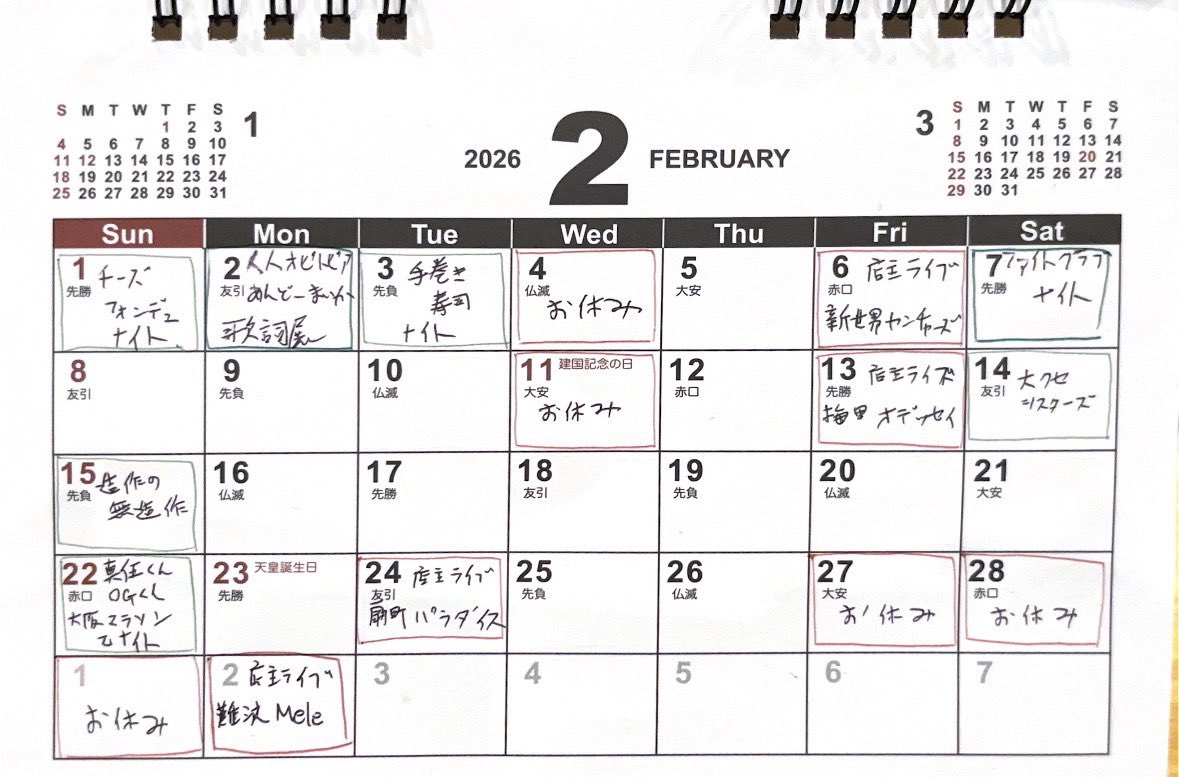 S M T W T F S
1 2 3
4 5 6 7 8 9 10
11 12 13 14 15 16 17
18 19 20 21 22 23 24
25 26 27 28 29 30 31
1
2026 2 FEBRUARY
3
S M T W T F S
1 2 3 4 5 6 7
8 9 10 11 12 13 14
15 16 17 18 19 20 21
22 23 24 25 26 27 28
29 30 31
Sun Mon Tue Wed Thu Fri Sat
1 チーズ
先勝
フォンデュ
ナイト
2
友引 あんどーまっか
歌詞展
3 手巻き
先負 寿司
ナイト
4
仏滅
お休み
5
大安
6 店主ライブ
赤口
新世界ヤンチャーズ
7 ファイトクラブ
先勝 ナイト
8
友引
9
先負
10
仏滅
11 建国記念の日
大安
お休み
12
赤口
13 店主ライブ
先勝
梅田 オデッセイ
14
友引 大クセ
シスターズ
15 造作の
先負 無造作
16
仏滅
17
先勝
18
友引
19
先負
20
仏滅
21
大安
22 真任くん
赤口 OGくん
大阪マラソン
ナイト
23 天皇誕生日
先勝
24 店主ライブ
友引
扇町 パラダイス
25
先負
26
仏滅
27
大安
お休み
28
赤口
お休み
1
お休み
2 店主ライブ
難波 Mele
3
4
5
6
7